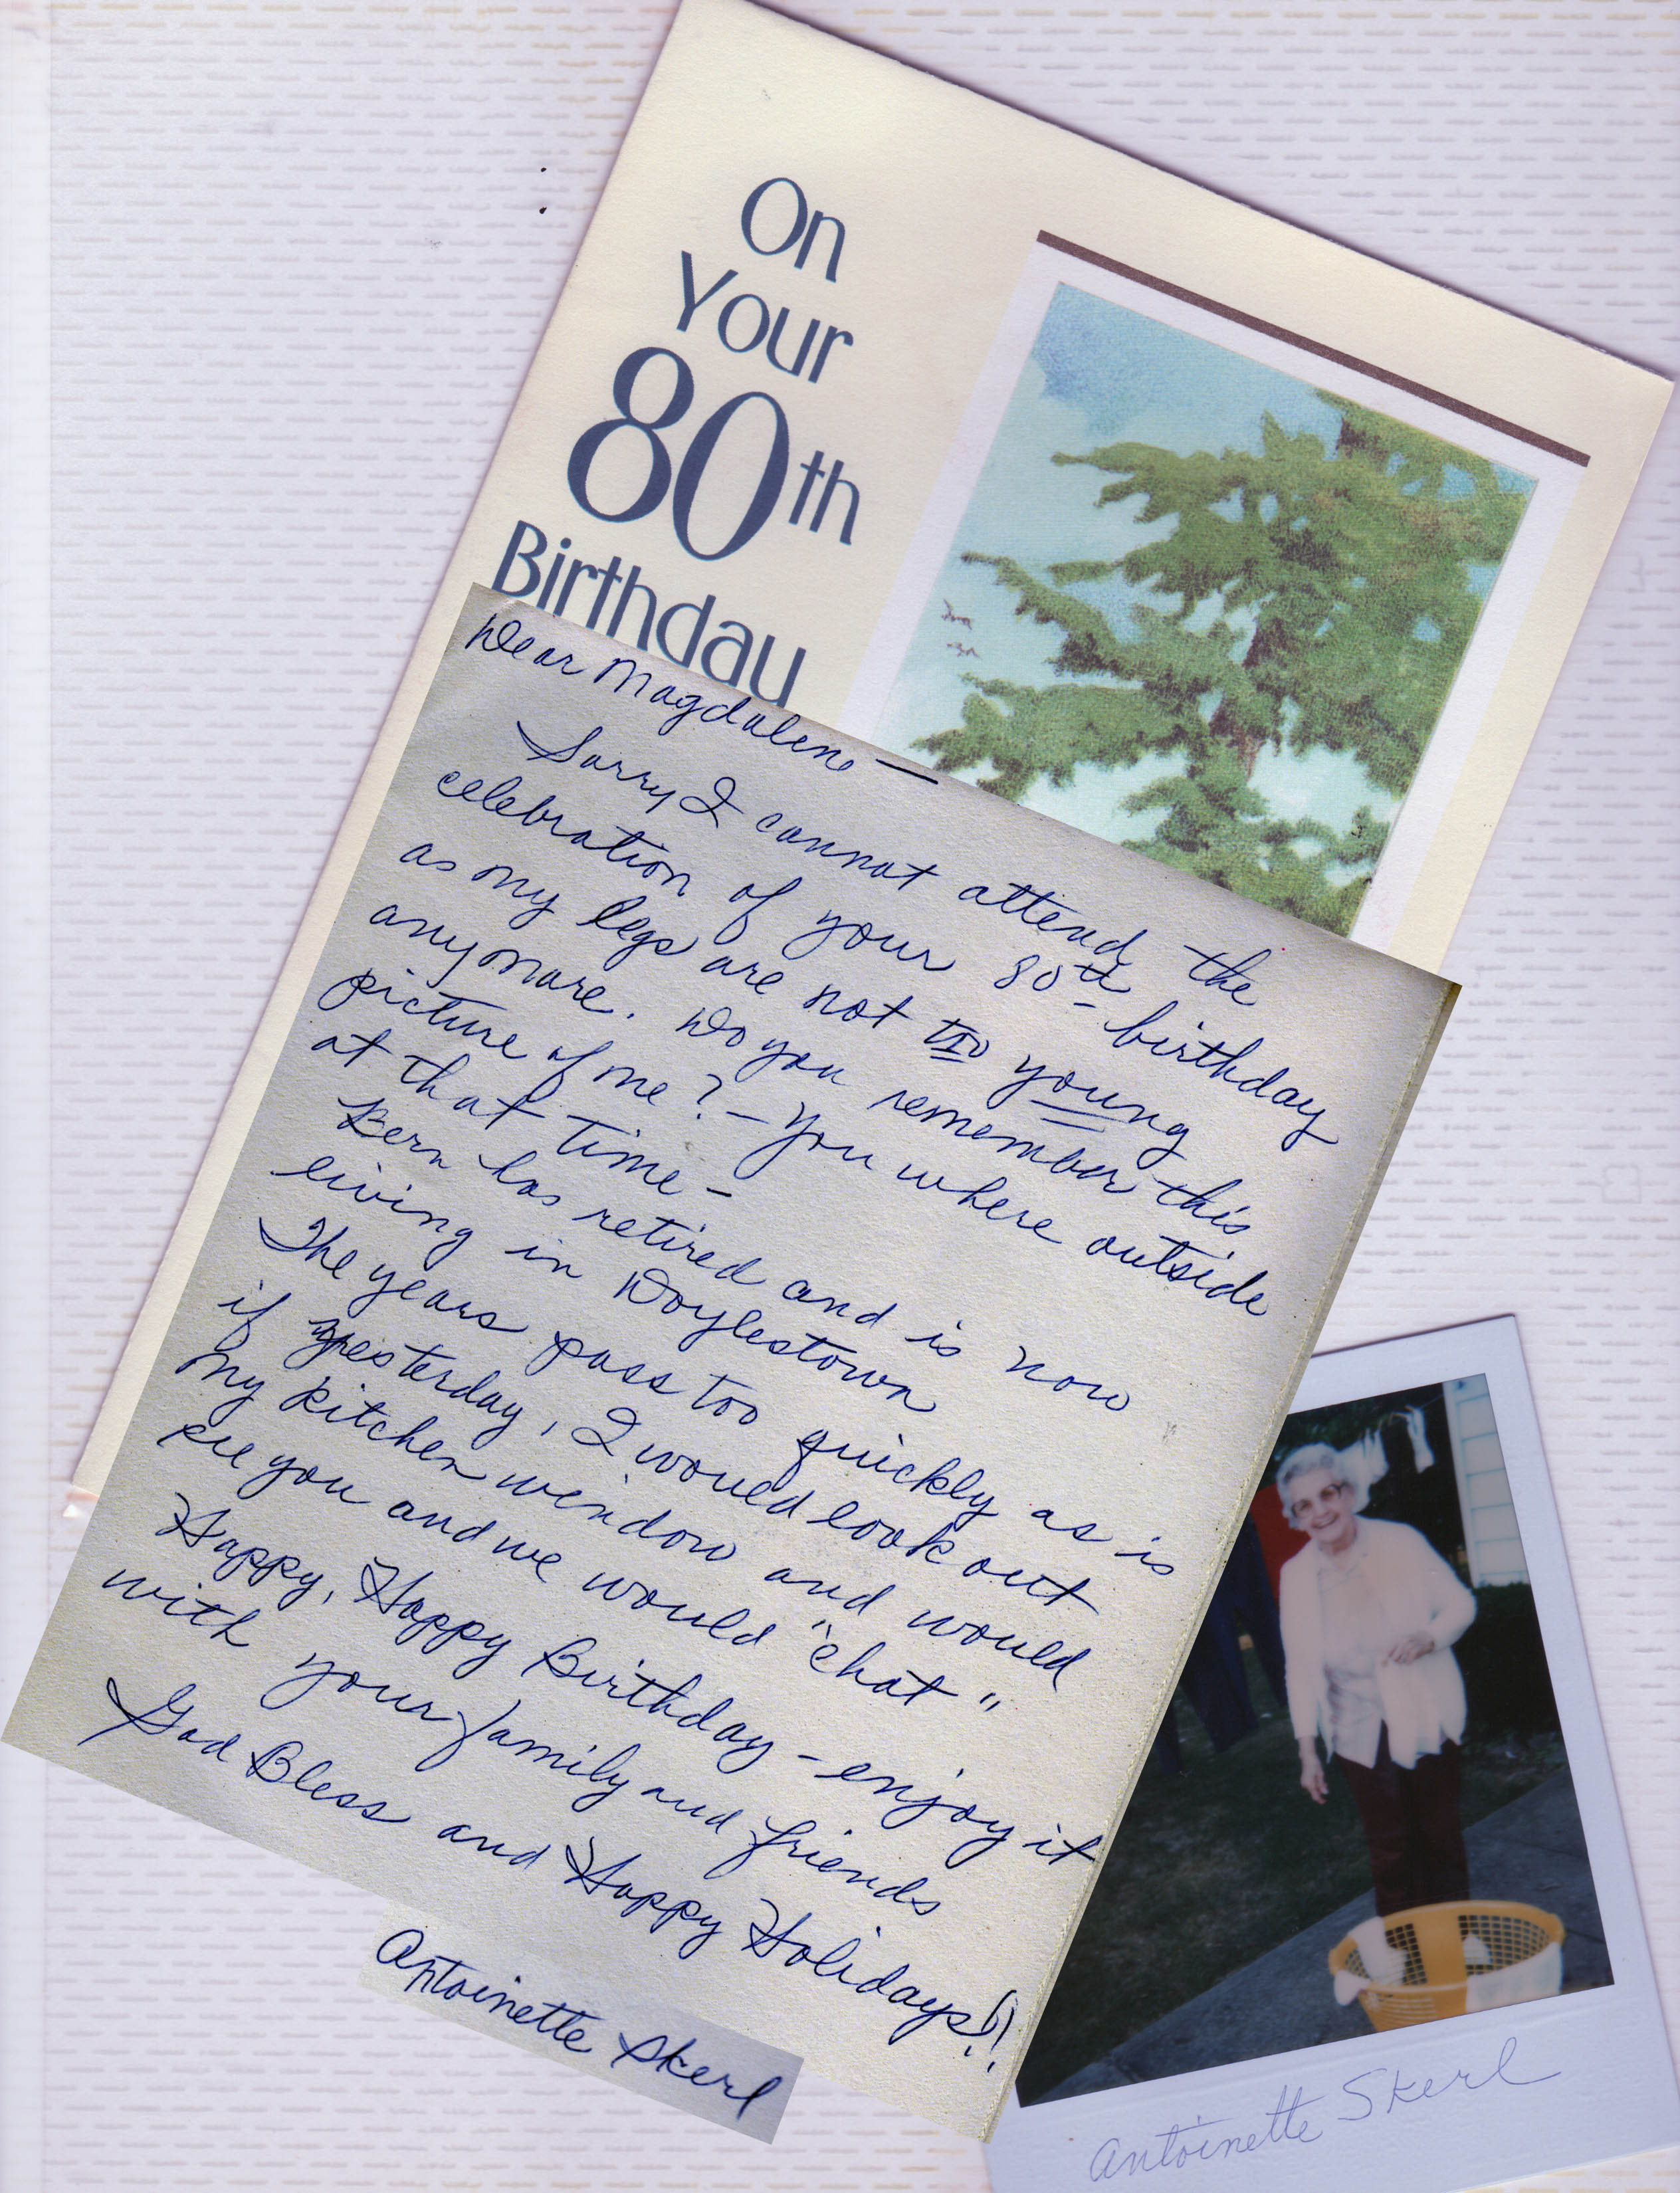 On
Your
80th
Birthday
Dear Magdalene —
Sorry I cannot attend the
celebration of your 80th birthday
as my legs are not too young
anymore. Do you remember this
picture of me? – You where outside
at that time –
Bern has retired and is now
living in Doylestown
The years pass too quickly as is
if yesterday, I would look out
my kitchen window and would
see you and we would "chat"
Happy, Happy Birthday – enjoy it
with your family and friends
God Bless and Happy Holidays!!
Antoinette Skerl
Antoinette Skerl